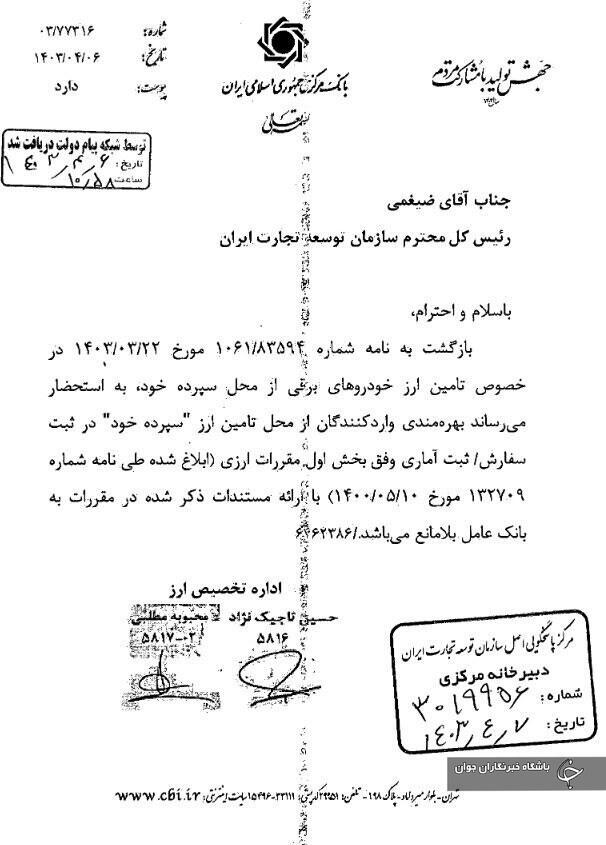 شماره: ۰۳/۷۷۳۱۶
تاریخ: ۱۴۰۳/۰۴/۰۶
پیوست: دارد
بانک مرکزی جمهوری اسلامی ایران
بسمه تعالی
جهش تولید با مشارکت مردم
توسط شبکه پیام دولت دریافت شد
تاریخ: ۱۴۰۳/۴/۶
ساعت: ۱۰/۵۸
جناب آقای ضیغمی
رئیس کل محترم سازمان توسعه تجارت ایران
باسلام و احترام،
بازگشت به نامه شماره ۱۰۶۱/۸۳۵۹۴ مورخ ۱۴۰۳/۰۳/۲۲ در
خصوص تامین ارز خودروهای برقی از محل سپرده خود، به استحضار
می‌رساند بهره‌مندی واردکنندگان از محل تامین ارز "سپرده خود" در ثبت
سفارش/ ثبت آماری وفق بخش اول مقررات ارزی (ابلاغ شده طی نامه شماره
۱۳۲۷۰۹ مورخ ۱۴۰۰/۰۵/۱۰) با ارائه مستندات ذکر شده در مقررات به
بانک عامل بلامانع می‌باشد./
اداره تخصیص ارز
حسین تاجیک نژاد محبوبه مطلبی
۵۸۱۶ ۵۸۱۷-۰۲
مرکز پاسخگویی اصل سازمان توسعه تجارت ایران
دبیرخانه مرکزی
شماره: ۳۰۱۹۹۵۶
تاریخ: ۱۴۰۳/۴/۷
باشگاه خبرنگاران جوان
تهران-بلوار میرداماد-پلاک ۱۹۸-تلفن: ۲۹۹۵۱ کدپستی: ۳۳۱۱۱-۱۵۴۹۶ سایت اینترنتی: www.cbi.ir